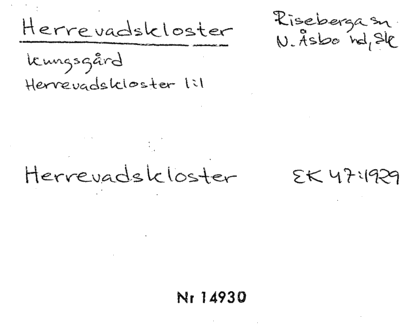 Herrevadskloster
Riseberga sn
N. Åsbo hd, Sk
Kungsgård
Herrevadskloster 1:1
Herrevadskloster
EK 47:1929
Nr 14930